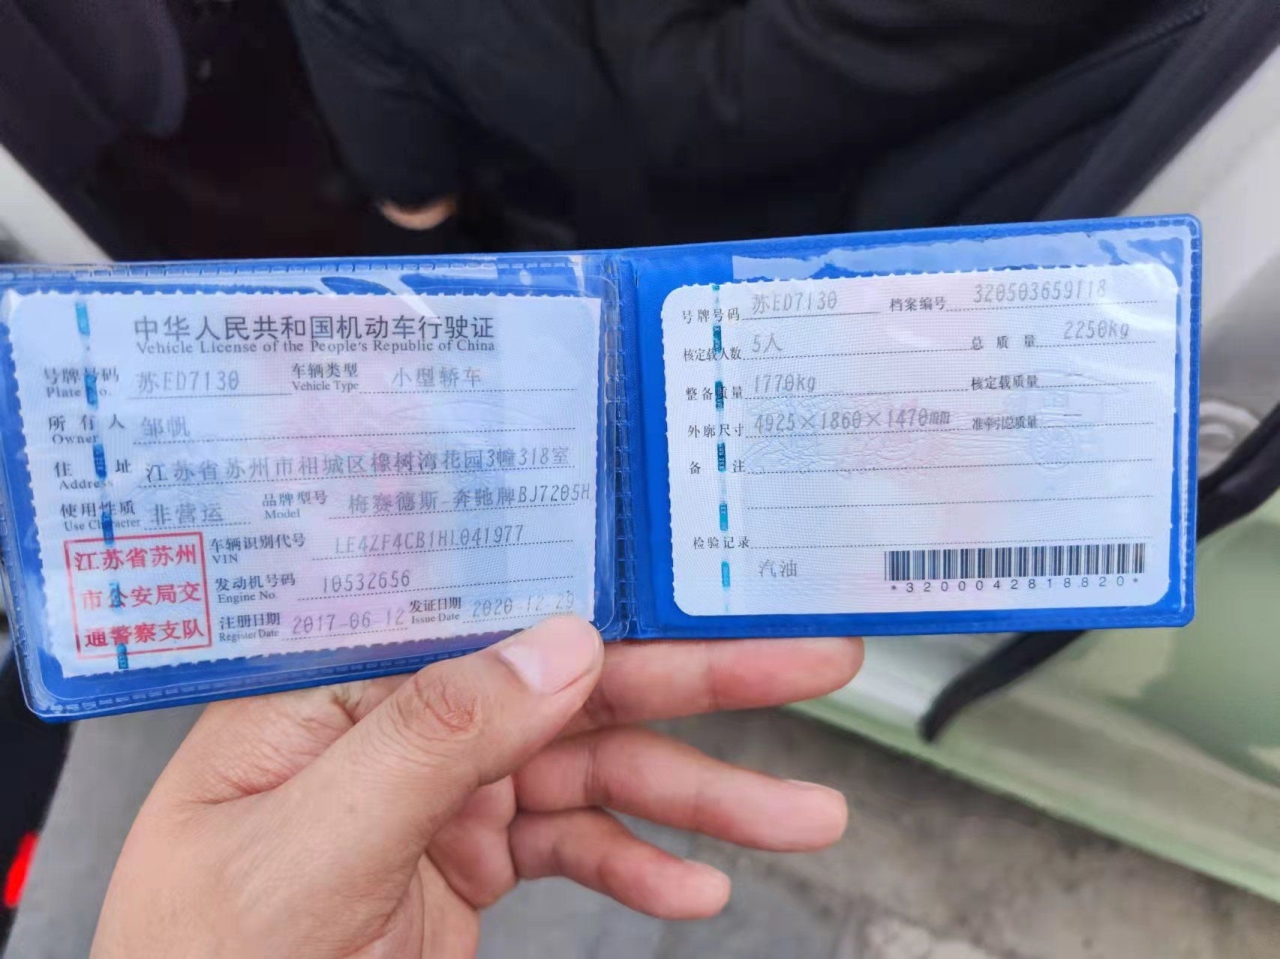 中华人民共和国机动车行驶证
Vehicle License of the People's Republic of China
号牌号码 苏ED7130 车辆类型 小型轿车
Plate No. Vehicle Type
所有人 邹帆
Owner
住址 江苏省苏州市相城区橡树湾花园3幢318室
Address
使用性质 非营运 品牌型号 梅赛德斯-奔驰牌BJ7205H
Use Character Model
江苏省苏州
市公安局交
通警察支队
车辆识别代号 LE4ZF4CB1HL041977
VIN
发动机号码 10532656
Engine No.
注册日期 2017-06-12 发证日期 2020-12-29
Register Date Issue Date
号牌号码 苏ED7130 档案编号 320503659118
核定载人数 5人 总质量 2250kg
整备质量 1770kg 核定载质量
外廓尺寸 4925×1860×1470mm 准牵引总质量
备注
检验记录
汽油
*3200042818820*